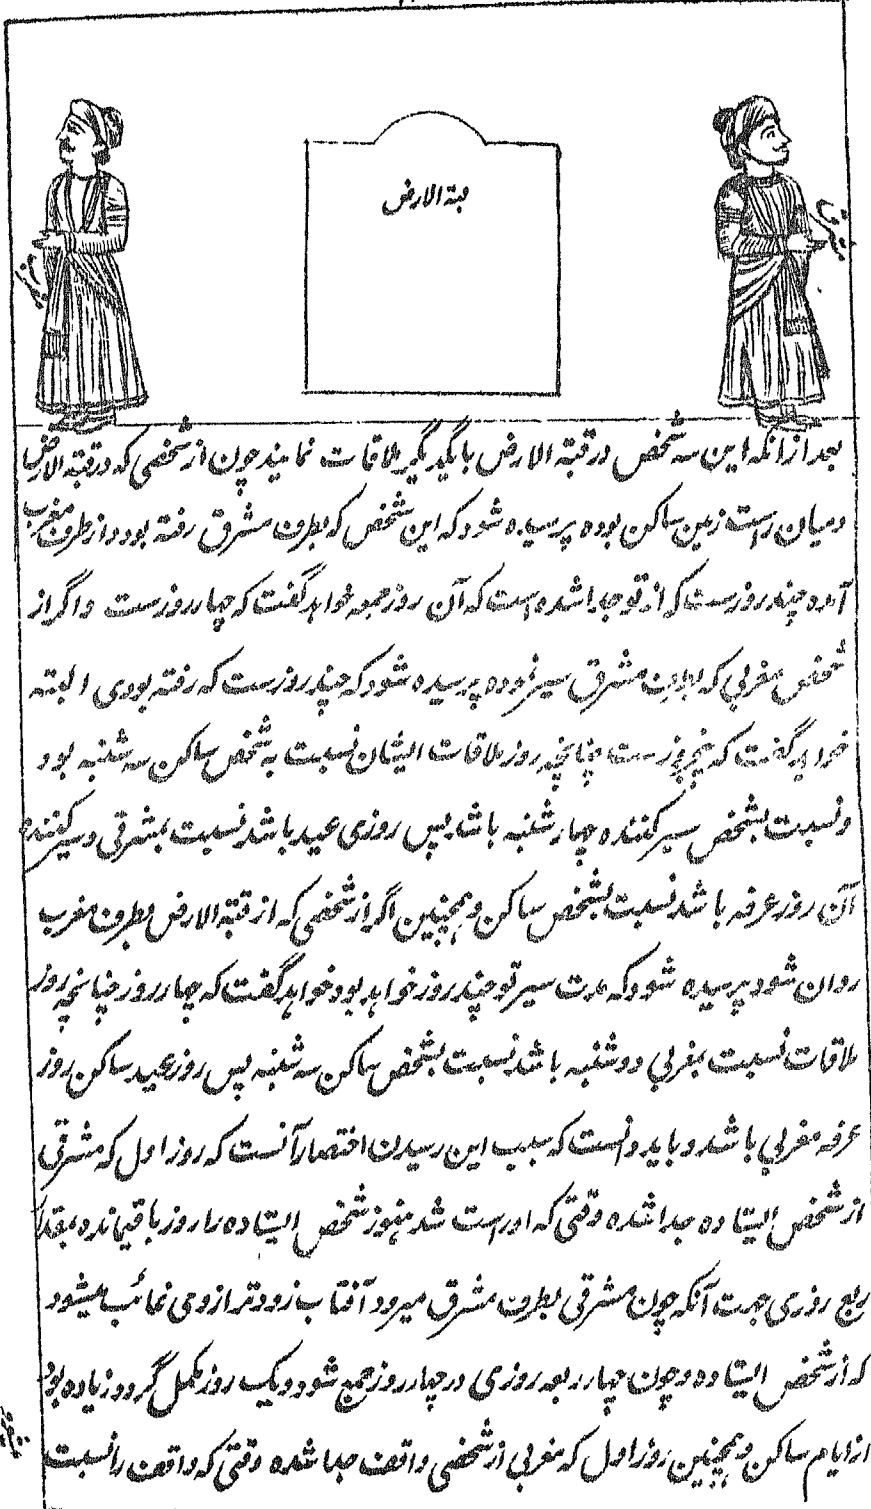 قبة الارض
مشرق
مغرب
بعد ازانکه این سه شخص در قبة الارض با یکدیگر ملاقات نمایند چون از شخصی که در قبة الارض
و میان راست زمین ساکن بوده پرسیده شود که این شخص که بطرف مشرق رفته بود و از طرف مغرب
آمده چند روزست که از تو جدا شده است که آن روز جمعه خواهد گفت که چهار روزست و اگر از
شخص مغربی که از مشرق سیر نموده پرسیده شود که چند روزست که رفته بودی البته
خواهد گفت که پنجروزست چنانچه روز ملاقات ایشان نسبت به شخص ساکن سه شنبه بود
و نسبت بشخص سیر کننده چهار شنبه باشد پس روزی عید باشد نسبت بمشرقی و سیر کننده
آن روز عرفه باشد نسبت بشخص ساکن و همچنین اگر از شخصی که از قبة الارض بطرف مغرب
روان شود پرسیده شود که مدت سیر تو چند روز خواهد بود خواهد گفت که چهار روز چنانچه روز
ملاقات نسبت بمغربی دو شنبه باشد نسبت بشخص ساکن سه شنبه پس روز عید ساکن روز
عرفه مغربی باشد و باید دانست که سبب این رسیدن اختصارآنست که روز اول که مشرقی
از شخص ایستاده جدا شده وقتی که او راست شد هنوز شخص ایستاده را روز باقیمانده بمقدار
ربع روزی جهت آنکه چون مشرقی بطرف مشرق میرود آفتاب زودتر از وی غائب میشود
که از شخص ایستاده و چون چهار ربع روزی در چهار روز جمع شود و یک روز مکمل گردد زیاده بود
از ایام ساکن و همچنین روز اول که مغربی از شخصی واقف جدا شده وقتی که واقف را نسبت